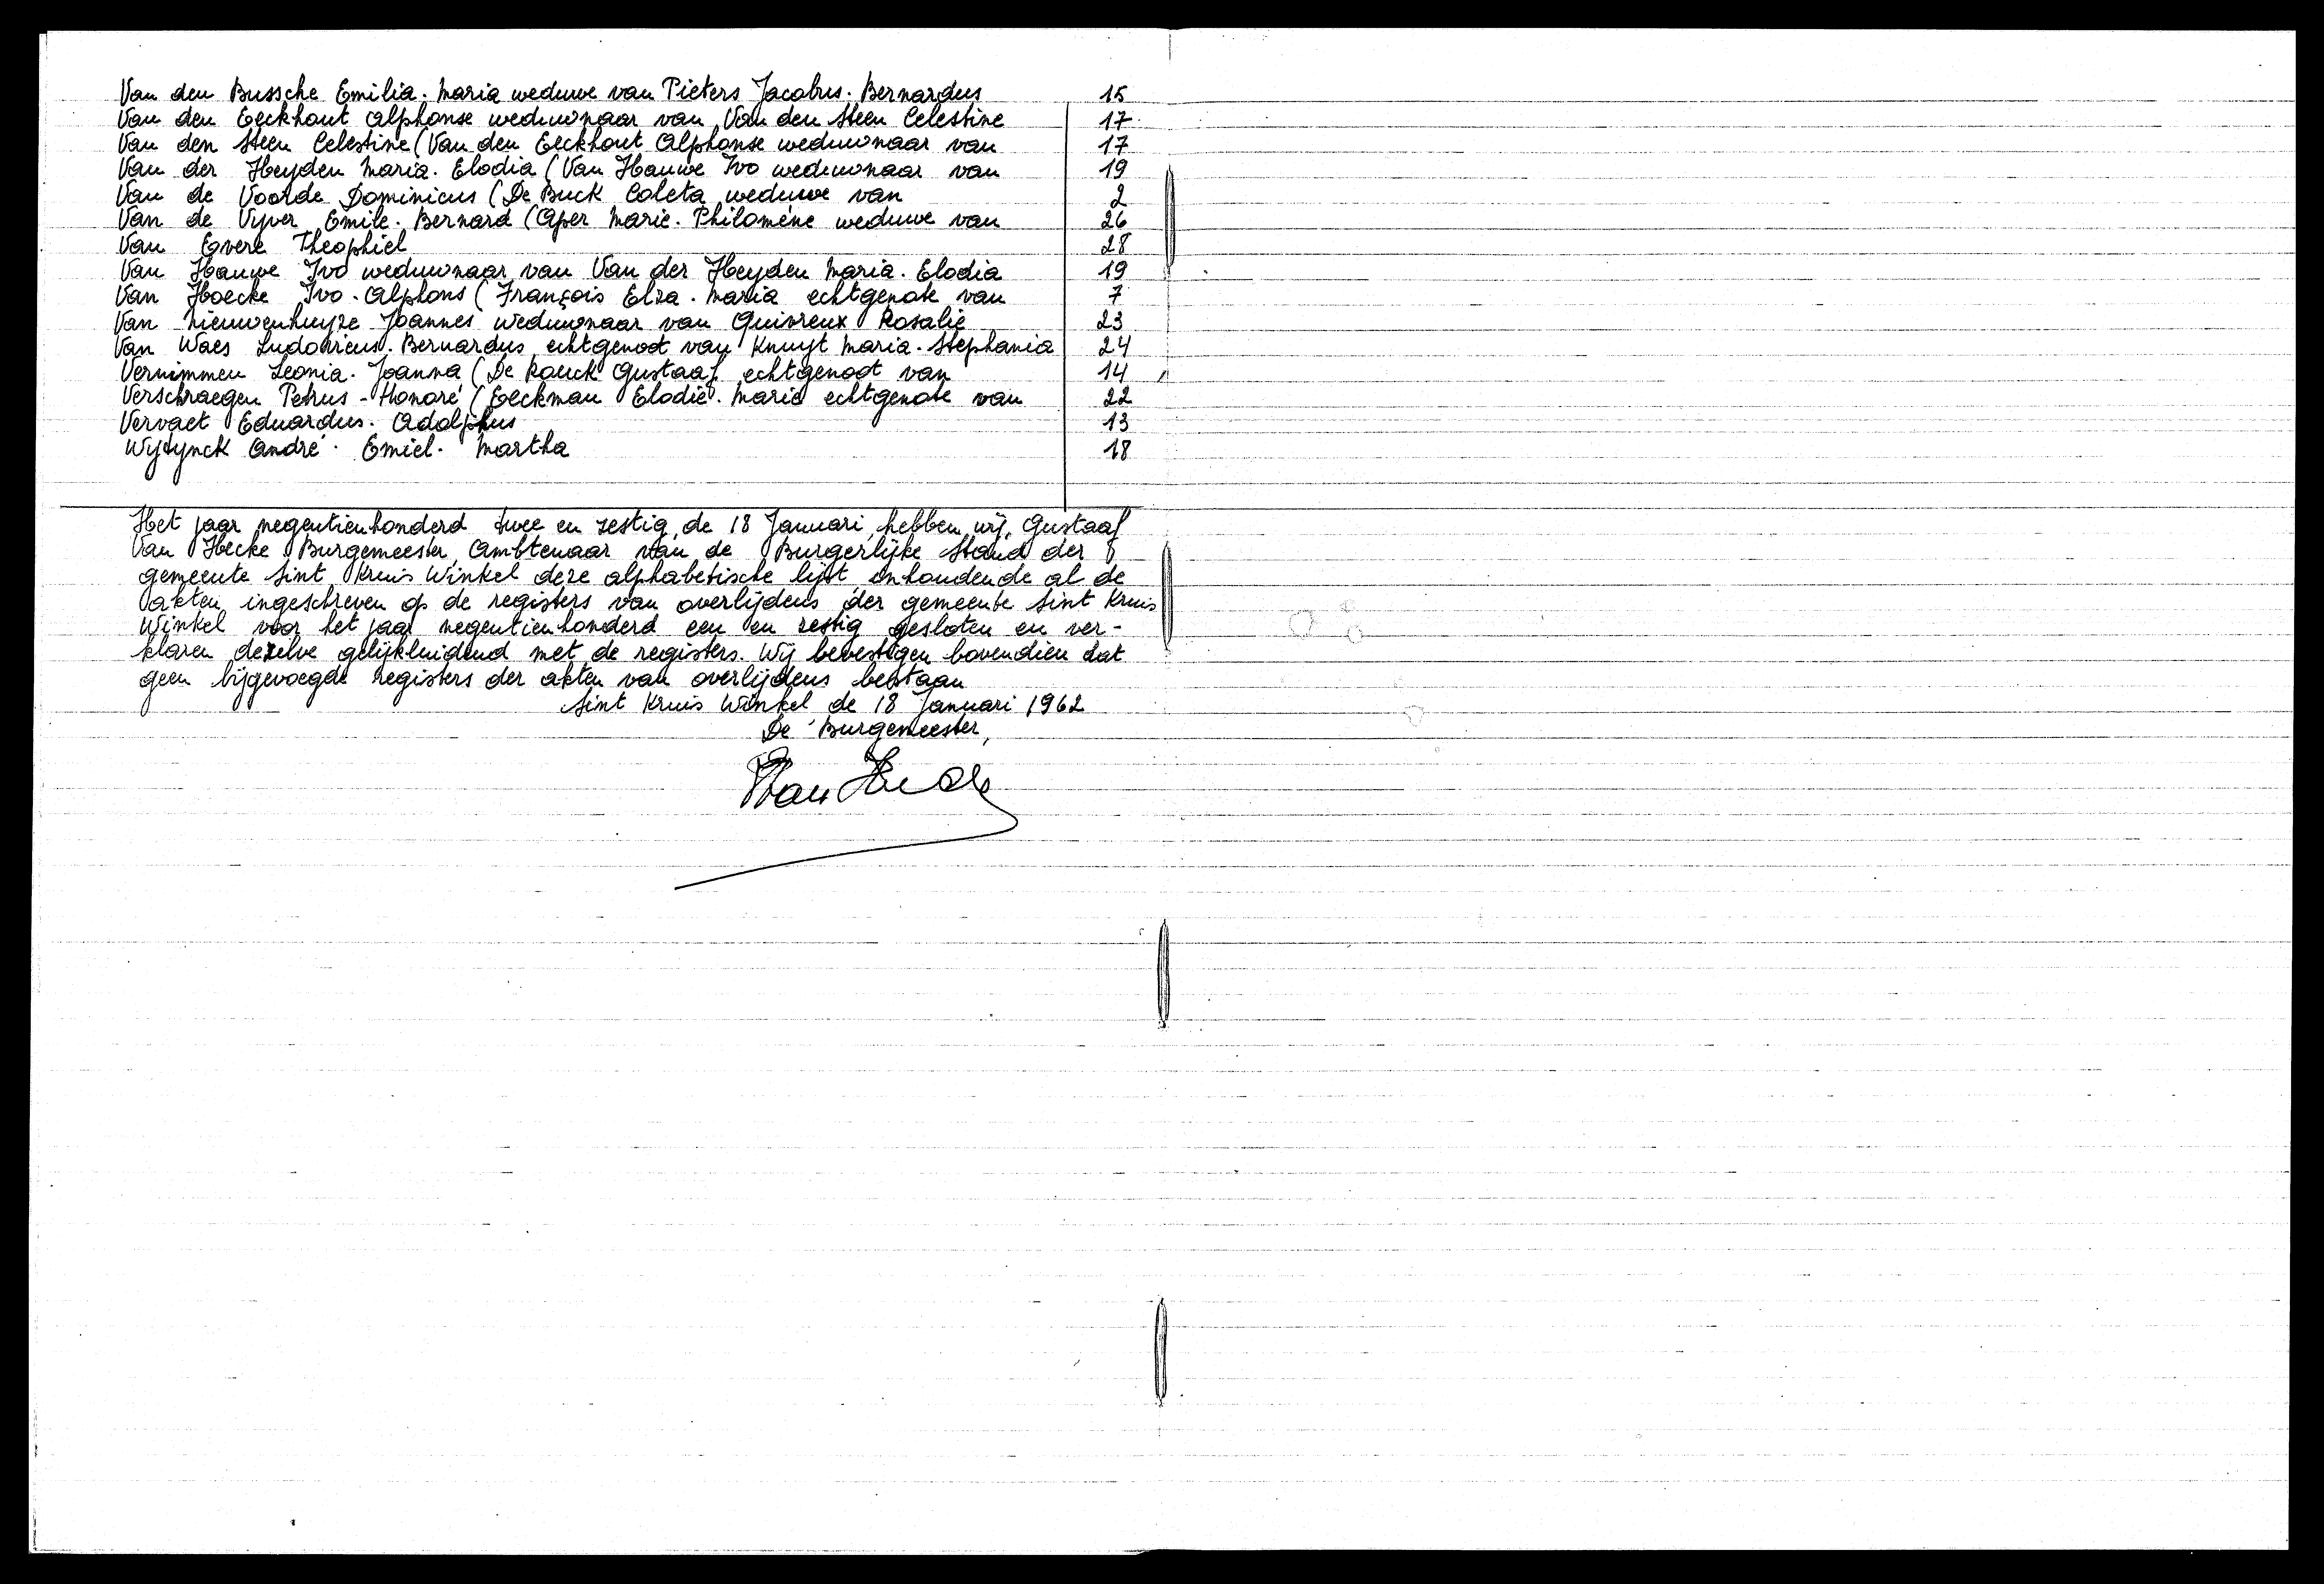 Van den Bussche Emilia. Maria weduwe van Pieters Jacobus. Bernardus 15
Van den Eeckhout Alphonse weduwnaar van Van den Steen Celestine 17
Van den Steen Celestine (Van den Eeckhout Alphonse weduwnaar van 17
Van der Heyden Maria. Elodia (Van Hauwe Ivo weduwnaar van 19
Van de Voorde Dominicus (De Buck Coleta weduwe van 2
Van de Vyver Emile. Bernard (Aper Marie. Philomène weduwe van 26
Van Evere Theophiel 28
Van Hauwe Ivo weduwnaar van Van der Heyden Maria. Elodia 19
Van Hoecke Ivo. Alphons (François Elza. Maria echtgenote van 7
Van Nieuwenhuyze Joannes weduwnaar van Quivreux Rosalie 23
Van Waes Ludovicus. Bernardus echtgenoot van Knuyt Maria. Stephania 24
Vernimmen Leonia. Joanna (De Raeck Gustaaf echtgenoot van 14
Verschraegen Petrus - Honoré (Eeckman Elodie. Marie echtgenote van 22
Vervaet Eduardus. Adolphus 13
Wytynck André. Emiel. Martha 18
Het jaar negentienhonderd twee en zestig, de 18 Januari, hebben wij, Gustaaf
Van Hecke Burgemeester, Ambtenaar van de Burgerlijke Stand der
gemeente Sint Kruis Winkel deze alphabetische lijst inhoudende al de
akten ingeschreven op de registers van overlijdens der gemeente Sint Kruis
Winkel voor het jaar negentienhonderd een en zestig gesloten en ver-
klaren dezelve gelijkluidend met de registers. Wij bevestigen bovendien dat
geen bijgevoegde registers der akten van overlijdens bestaan
Sint Kruis Winkel de 18 Januari 1962
De Burgemeester,